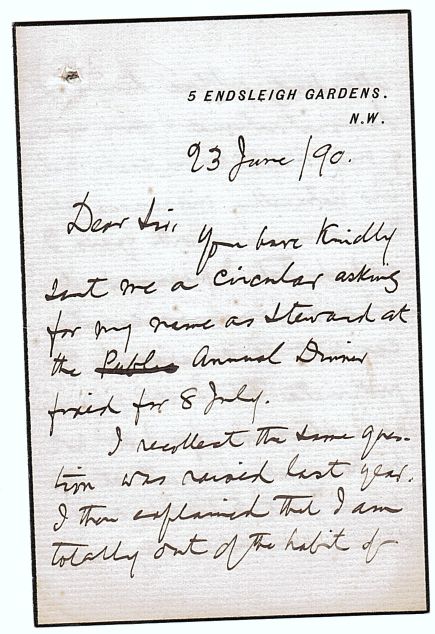 5 ENDSLEIGH GARDENS.
N.W.
23 June /90.
Dear Sir,
You have kindly
sent me a circular asking
for my name as Steward at
the Public Annual Dinner
fixed for 8 July.
I recollect the same ques-
tion was raised last year.
I then explained that I am
totally out of the habit of